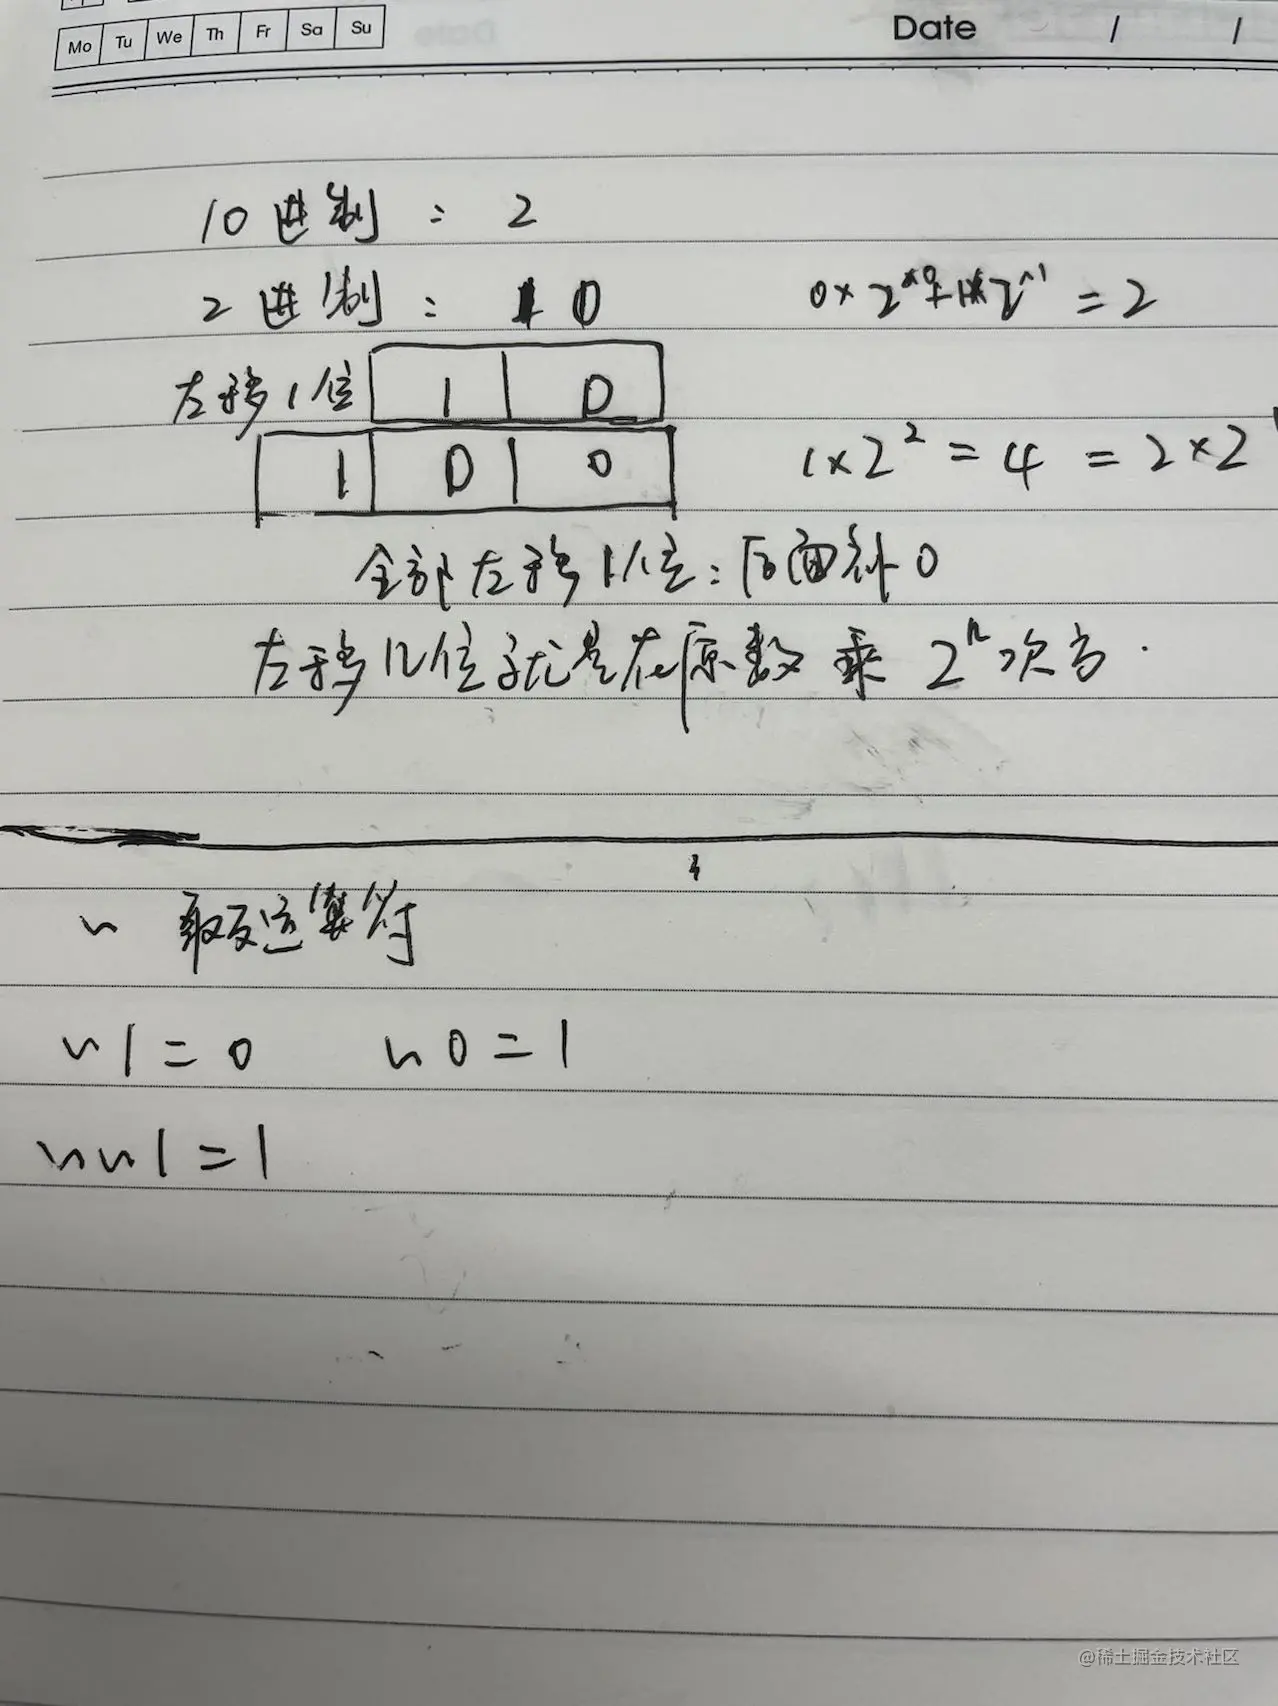 Mo Tu We Th Fr Sa Su
Date / /
10进制 : 2
2进制 : 10 0×2^0+1×2^1 = 2
左移1位 1 0
1 0 0 1×2² = 4 = 2×2¹
全部左移1位:后面补0
左移n位就是在原数乘 2ⁿ次方.
~ 取反运算符
~1=0 ~0=1
~~1=1
@稀土掘金技术社区